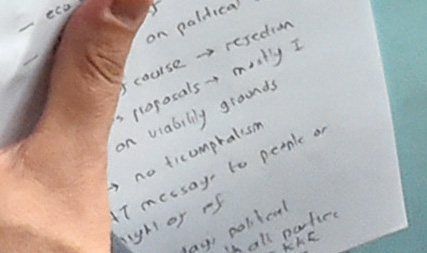 - eco
on political
course → rejection
proposals → mostly I
on viability grounds
→ no triumphalism
message to people or
right of
political
all parties
KKE